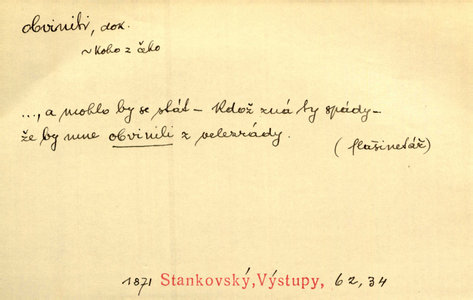 obviniti, dok.
~ koho z čeho
..., a mohlo by se stát – kdož zná ty spády –
že by mne obvinili z velezrády.
(flašinetář)
1871 Stankovský, Výstupy, 62, 34